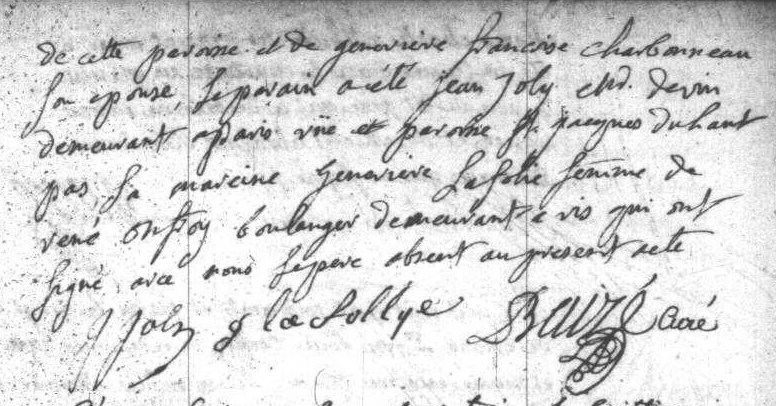 de cette paroisse et de geneviève francoise charbonneau
son epouse, le parain a été jean Joly md. de vin
demeurant a paris rüe et paroisse st. jacques du haut
pas, la maraine geneviève lafolie femme de
rené onfroy boulanger demeurant a vis qui ont
signé avec nous le pere absent au present acte
J Joly g la follye Bauzé Curé